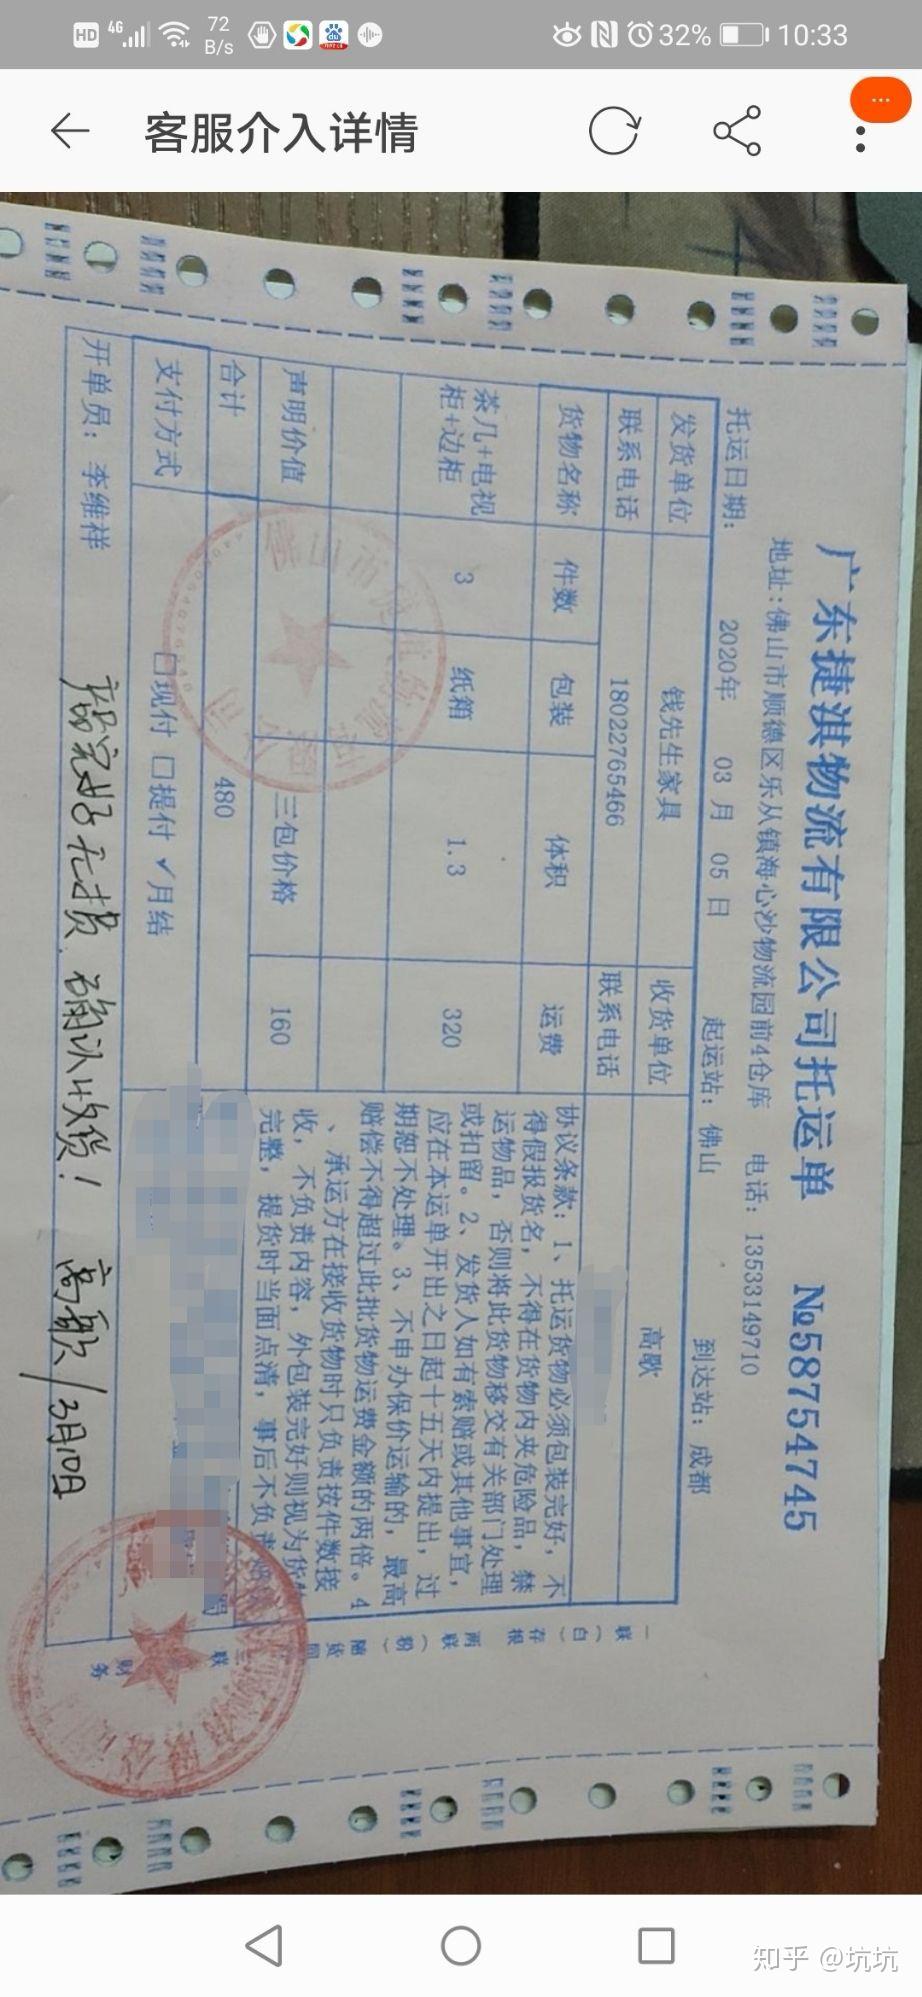 HD 4G 72 B/s 32% 10:33
客服介入详情
广东捷淇物流有限公司托运单 №58754745
地址:佛山市顺德区乐从镇海心沙物流园前4仓库 电话:13533149710
托运日期: 2020年 03月 05日 起运站:佛山 到达站:成都
发货单位 钱先生家具 收货单位 高歌
联系电话 18022765466 联系电话
货物名称 件数 包装 体积 运费
茶几+电视柜+边柜 3 纸箱 1.3 320
声明价值 三包价格 160
合计 480
支付方式 □现付 □提付 ✓月结
协议条款:1、托运货物必须包装完好,不
得假报货名,不得在货物内夹危险品,禁
运物品,否则将此货物移交有关部门处理
或扣留。2、发货人如有索赔或其他事宜,
应在本运单开出之日起十五天内提出,过
期恕不处理。3、不申办保价运输的,最高
赔偿不得超过此批货物运费金额的两倍。4
、承运方在接收货物时只负责按件数接
收,不负责内容,外包装完好则视为货
完整,提货时当面点清,事后不负责
开单员:李维祥
产品完好无损,确认收货! 高歌/3月10日
一联(白)存根
两联(粉)随货同
三联
财务
知乎 @坑坑